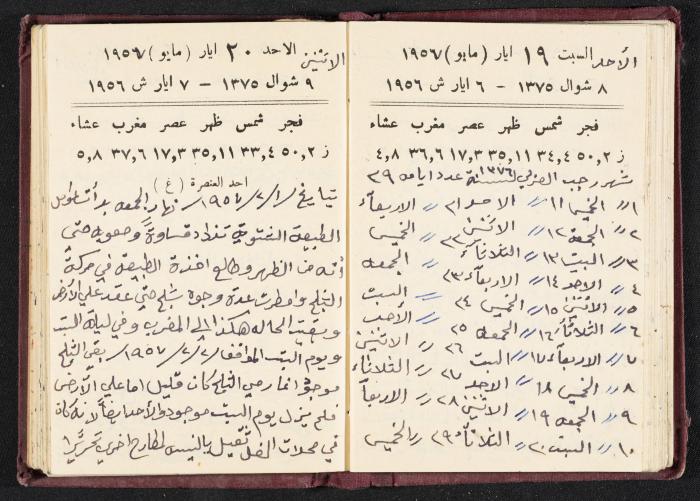 الأحد السبت ١٩ ايار (مايو) ١٩٥٦٧
٨ شوال ١٣٧٥ - ٦ ايار ش ١٩٥٦
فجر شمس ظهر عصر مغرب عشاء
ز ٥٠,٢ ٣٤,٤ ٣٥,١١ ١٧,٣ ٣٦,٦ ٤,٨
شهر رجب لسنة ١٣٧٦ عدد ايامه ٢٩
١ // الخميس ١١ // الاحد ٢١ // الاربعاء
٢ // الجمعه ١٢ // الاثنين ٢٢ // الخميس
٣ // السبت ١٣ // الثلاثاء // الجمعه
٤ // الاحد ١٤ // الاربعاء ٢٣ // السبت
٥ // الاثنين ١٥ // الخميس ٢٤ // الأحد
٦ // الثلاثاء ١٦ // الجمعه ٢٥ // الاثنين
٧ // الاربعاء ١٧ // السبت ٢٦ // الثلاثاء
٨ // الخميس ١٨ // الاحد ٢٧ // الاربعاء
٩ // الجمعه ١٩ // الاثنين ٢٨
١٠ // السبت ٢٠ // الثلاثاء ٢٩ // الخميس
الاثنين الاحد ٢٠ ايار (مايو) ١٩٥٦٧
٩ شوال ١٣٧٥ - ٧ ايار ش ١٩٥٦
فجر شمس ظهر عصر مغرب عشاء
ز ٥٠,٢ ٣٣,٤ ٣٥,١١ ١٧,٣ ٣٧,٦ ٥,٨
احد العنصرة (غ)
بتاريخ ١/٢/١٩٥٧ نهار الجمعه بدأت عوامل
الطبيعة الشتوية تزداد قساوةً وصعوبه حتى
أنه من الظهر وطالع اخذة الطبيعة في حركة
الثلج وامطرت عدة وجوه ثلج حتى عقد على الأرض
وبقيت الحاله هكذا الى المغرب وفي ليلة السبت
ويوم السبت الموافق ٢/٢/١٩٥٧ بقي الثلج
موجود انما رمي الثلج كان قليل اما على الأرض
فلم يزل يوم السبت موجود والأحد ايضاً لانه كان
في محلات الظل ثقيل بالنسبه لمطارح اخرى